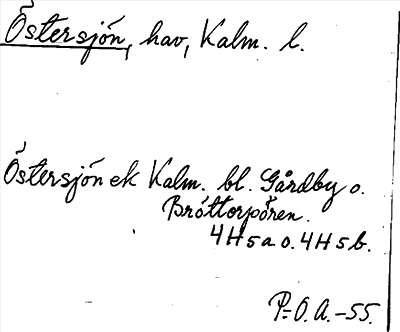 Östersjön, hav, Kalm. l.
Östersjön ek Kalm. bl. Gårdby o.
Bröttorpören.
4H5a o. 4H5b.
P-O.A.-55.